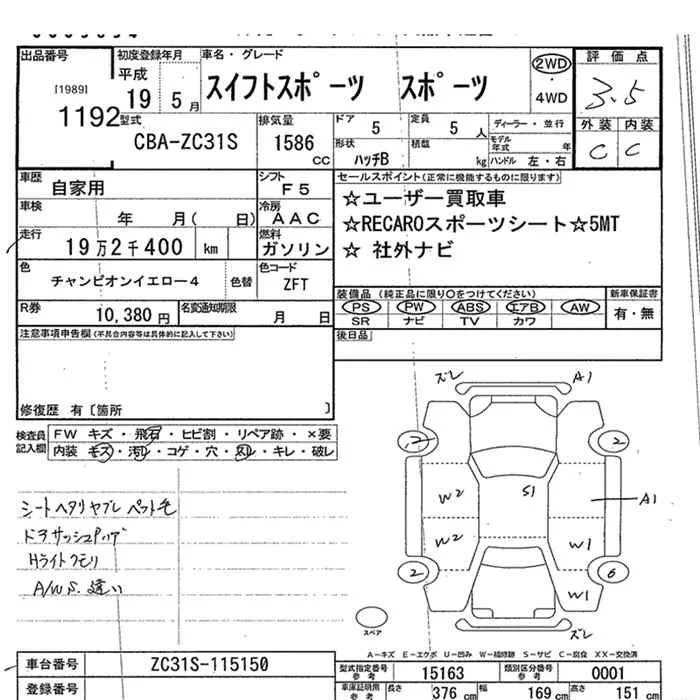 出品番号
[1989]
1192
初度登録年月
平成
19 5月
車名・グレード
スイフトスポーツ スポーツ
2WD
・
4WD
評価点
3.5
外装 内装
C C
型式
CBA-ZC31S
排気量
1586
CC
ドア
5
定員
5人
ディーラー・並行
形状
ハッチB
積載
kg
モデル
年式 年
ハンドル 左・右
車歴
自家用
シフト
F5
セールスポイント(正常に機能するものに限ります)
☆ユーザー買取車
☆RECAROスポーツシート☆5MT
☆ 社外ナビ
車検
年 月( 日)
冷房
AAC
走行
19万2千400
km
燃料
ガソリン
色
チャンピオンイエロー4
色替
色コード
ZFT
装備品 (純正品に限り○をつけてください)
PS PW ABS エアB AW
SR ナビ TV カワ
新車保証書
有・無
R券
10,380円
名変通知期限
月 日
後日品
注意事項申告欄(不具合内容等は具体的に記入して下さい)
修復歴 有〔箇所 〕
検査員
記入欄
FW キズ・飛石・ヒビ割・リペア跡・×要
内装 キズ・汚レ・コゲ・穴・スレ・キレ・破レ
シートヘタリヤブレ ペット毛
ドアサッシュPハゲ
Hライトクモリ
A/W S.違い
ズレ
A1
2
2
W2
S1
A1
W2
W1
2
6
W1
ズレ
スペア
A-キズ E-エクボ U-凹み W-補修跡 S-サビ C-腐食 XX-交換済
車台番号
ZC31S-115150
登録番号
型式指定番号
参考
15163
類別区分番号
参考
0001
車庫証明用
参考
長さ
376 cm
幅
169 cm
高さ
151 cm